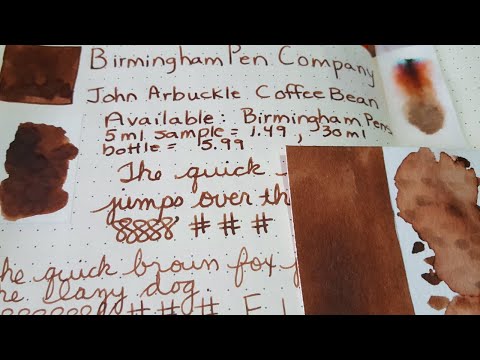 Birmingham Pen Company
John Arbuckle Coffee Bean
Available: Birmingham Pens
5ml sample = 1.49, 30ml
bottle = 15.99
The quick
jumps over th
# # #
he quick brown fox j
he lazy dog.
# # # E